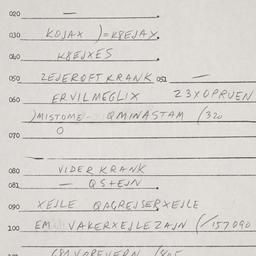 020 —
030 KOJAX )=K8EJAX
040 K8EJXES
050 2EJEROFT KRANK 051 —
060 ERVILMEGLIX 23XOPRUEN
)MISTOME- QMINASTAM (320
070 O
—
080 VIDER KRANK
081 — QS+EJN
090 XEJLE QAGREJSERXEJLE
100 EM VAKERXEJLEZAJN (/157090